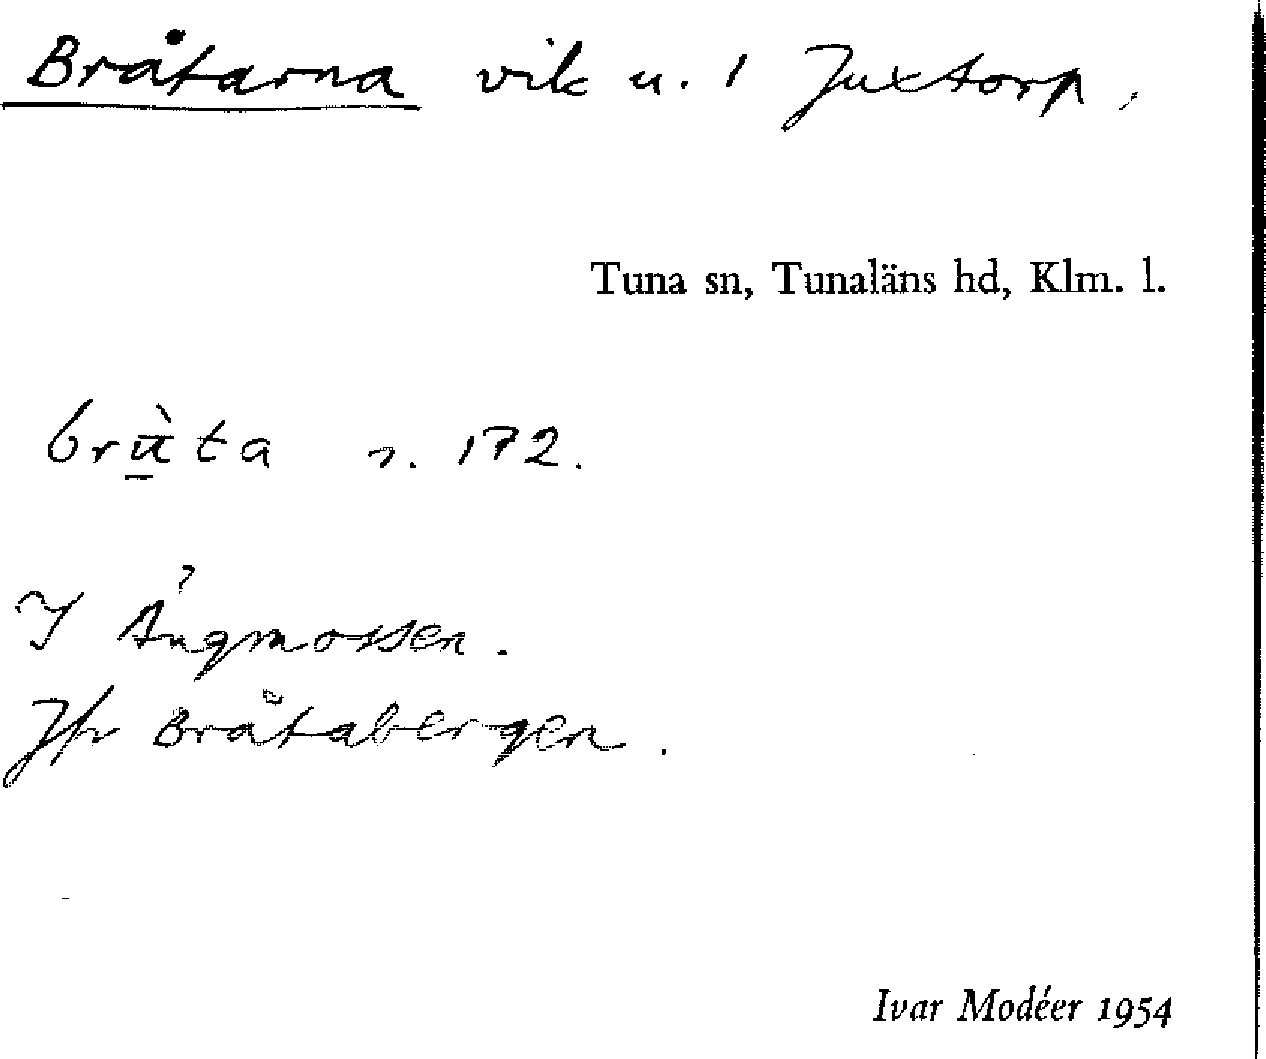 Bråtarna vik u. 1 Juxtorp,
Tuna sn, Tunaläns hd, Klm. l.
brùta s. 172.
I Ängmossen.
Jfr Bråtabergen.
Ivar Modéer 1954